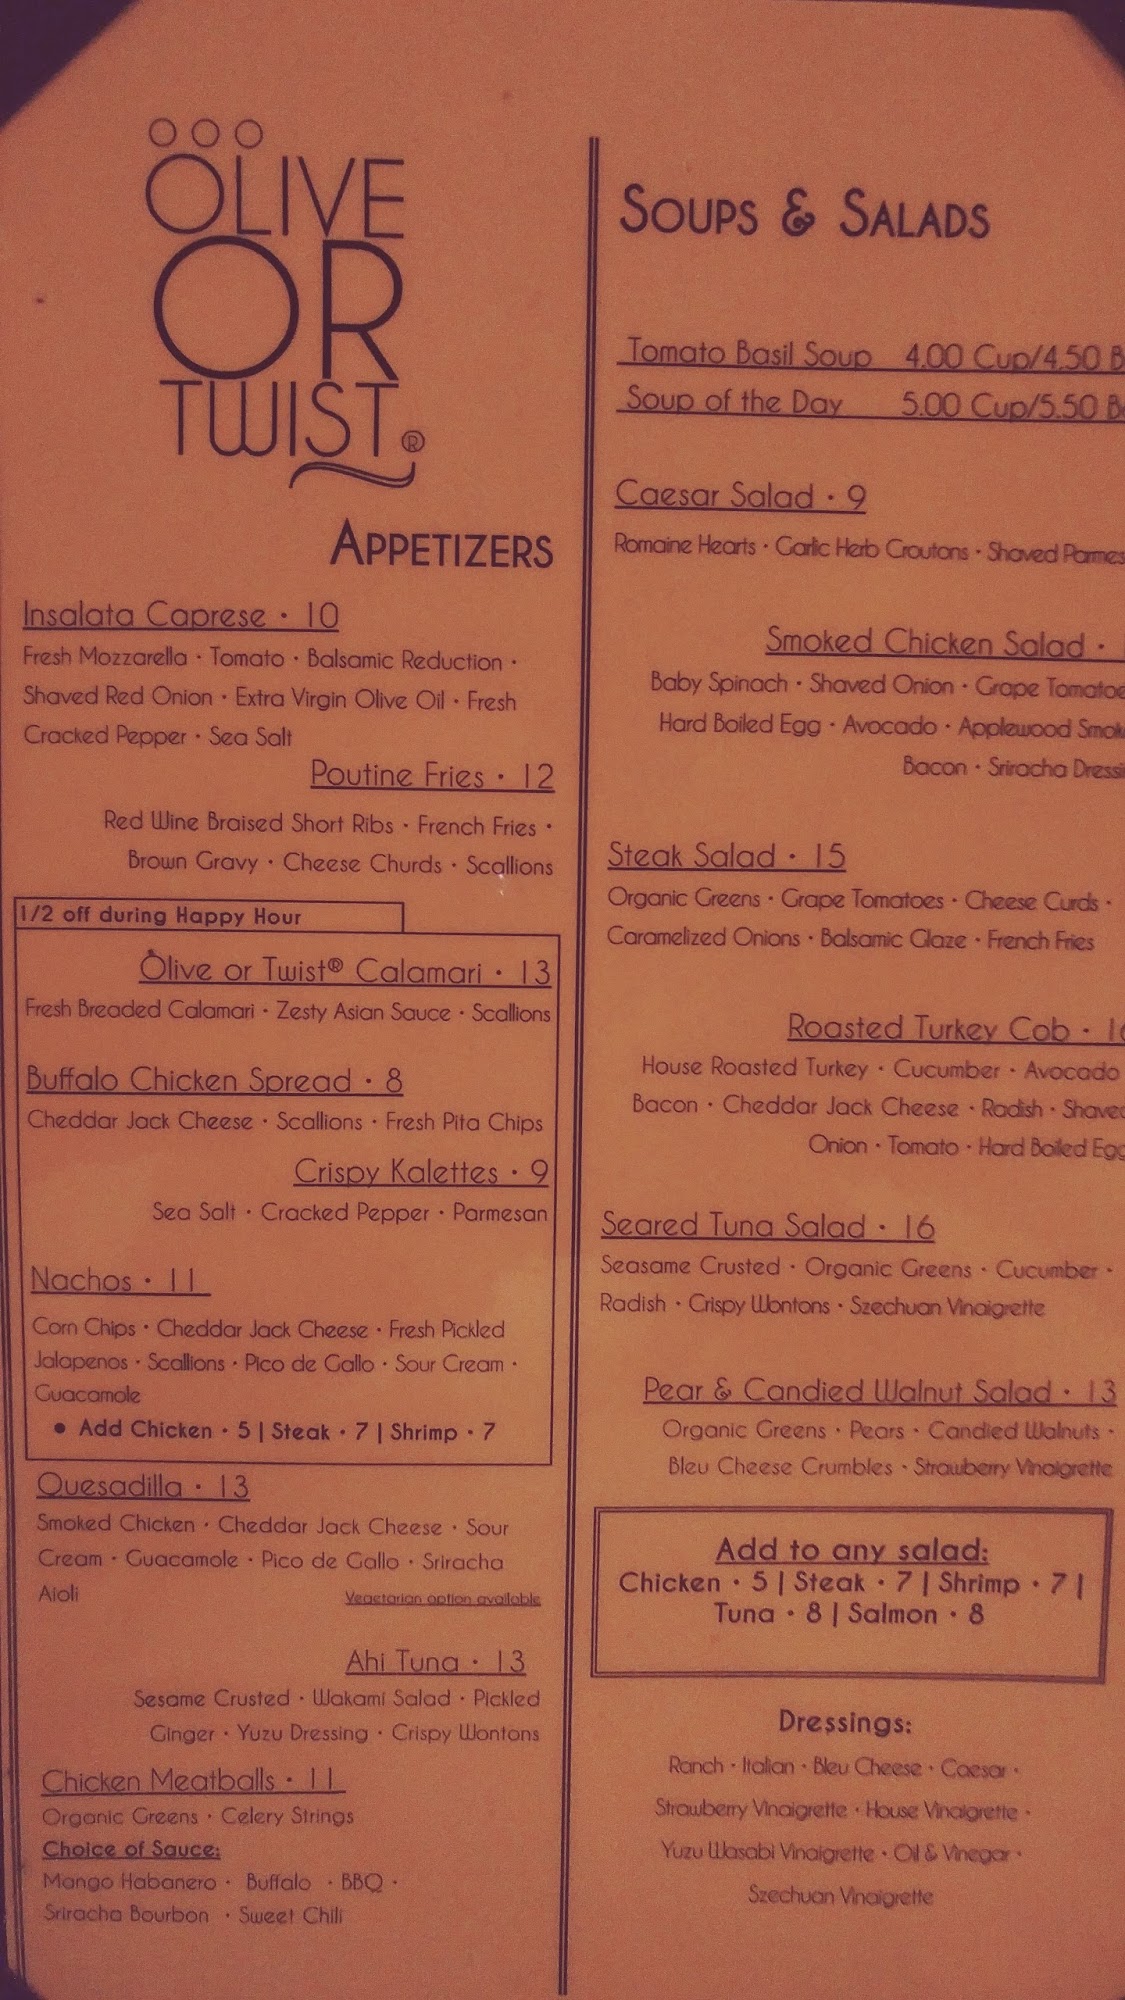 OLIVE
OR
TWIST®
APPETIZERS
Insalata Caprese · 10
Fresh Mozzarella · Tomato · Balsamic Reduction ·
Shaved Red Onion · Extra Virgin Olive Oil · Fresh
Cracked Pepper · Sea Salt
Poutine Fries · 12
Red Wine Braised Short Ribs · French Fries ·
Brown Gravy · Cheese Churds · Scallions
1/2 off during Happy Hour
Olive or Twist® Calamari · 13
Fresh Breaded Calamari · Zesty Asian Sauce · Scallions
Buffalo Chicken Spread · 8
Cheddar Jack Cheese · Scallions · Fresh Pita Chips
Crispy Kalettes · 9
Sea Salt · Cracked Pepper · Parmesan
Nachos · 11
Corn Chips · Cheddar Jack Cheese · Fresh Pickled
Jalapenos · Scallions · Pico de Gallo · Sour Cream ·
Guacamole
• Add Chicken · 5 | Steak · 7 | Shrimp · 7
Quesadilla · 13
Smoked Chicken · Cheddar Jack Cheese · Sour
Cream · Guacamole · Pico de Gallo · Sriracha
Aioli Vegetarian option available
Ahi Tuna · 13
Sesame Crusted · Wakami Salad · Pickled
Ginger · Yuzu Dressing · Crispy Wontons
Chicken Meatballs · 11
Organic Greens · Celery Strings
Choice of Sauce:
Mango Habanero · Buffalo · BBQ ·
Sriracha Bourbon · Sweet Chili
SOUPS & SALADS
Tomato Basil Soup 4.00 Cup/4.50 B
Soup of the Day 5.00 Cup/5.50 Bo
Caesar Salad · 9
Romaine Hearts · Garlic Herb Croutons · Shaved Parmes
Smoked Chicken Salad ·
Baby Spinach · Shaved Onion · Grape Tomatoe
Hard Boiled Egg · Avocado · Applewood Smok
Bacon · Sriracha Dressi
Steak Salad · 15
Organic Greens · Grape Tomatoes · Cheese Curds ·
Caramelized Onions · Balsamic Glaze · French Fries
Roasted Turkey Cob · 16
House Roasted Turkey · Cucumber · Avocado
Bacon · Cheddar Jack Cheese · Radish · Shaved
Onion · Tomato · Hard Boiled Egg
Seared Tuna Salad · 16
Seasame Crusted · Organic Greens · Cucumber ·
Radish · Crispy Wontons · Szechuan Vinaigrette
Pear & Candied Walnut Salad · 13
Organic Greens · Pears · Candied Walnuts ·
Bleu Cheese Crumbles · Strawberry Vinaigrette
Add to any salad:
Chicken · 5 | Steak · 7 | Shrimp · 7 |
Tuna · 8 | Salmon · 8
Dressings:
Ranch · Italian · Bleu Cheese · Caesar ·
Strawberry Vinaigrette · House Vinaigrette ·
Yuzu Wasabi Vinaigrette · Oil & Vinegar ·
Szechuan Vinaigrette